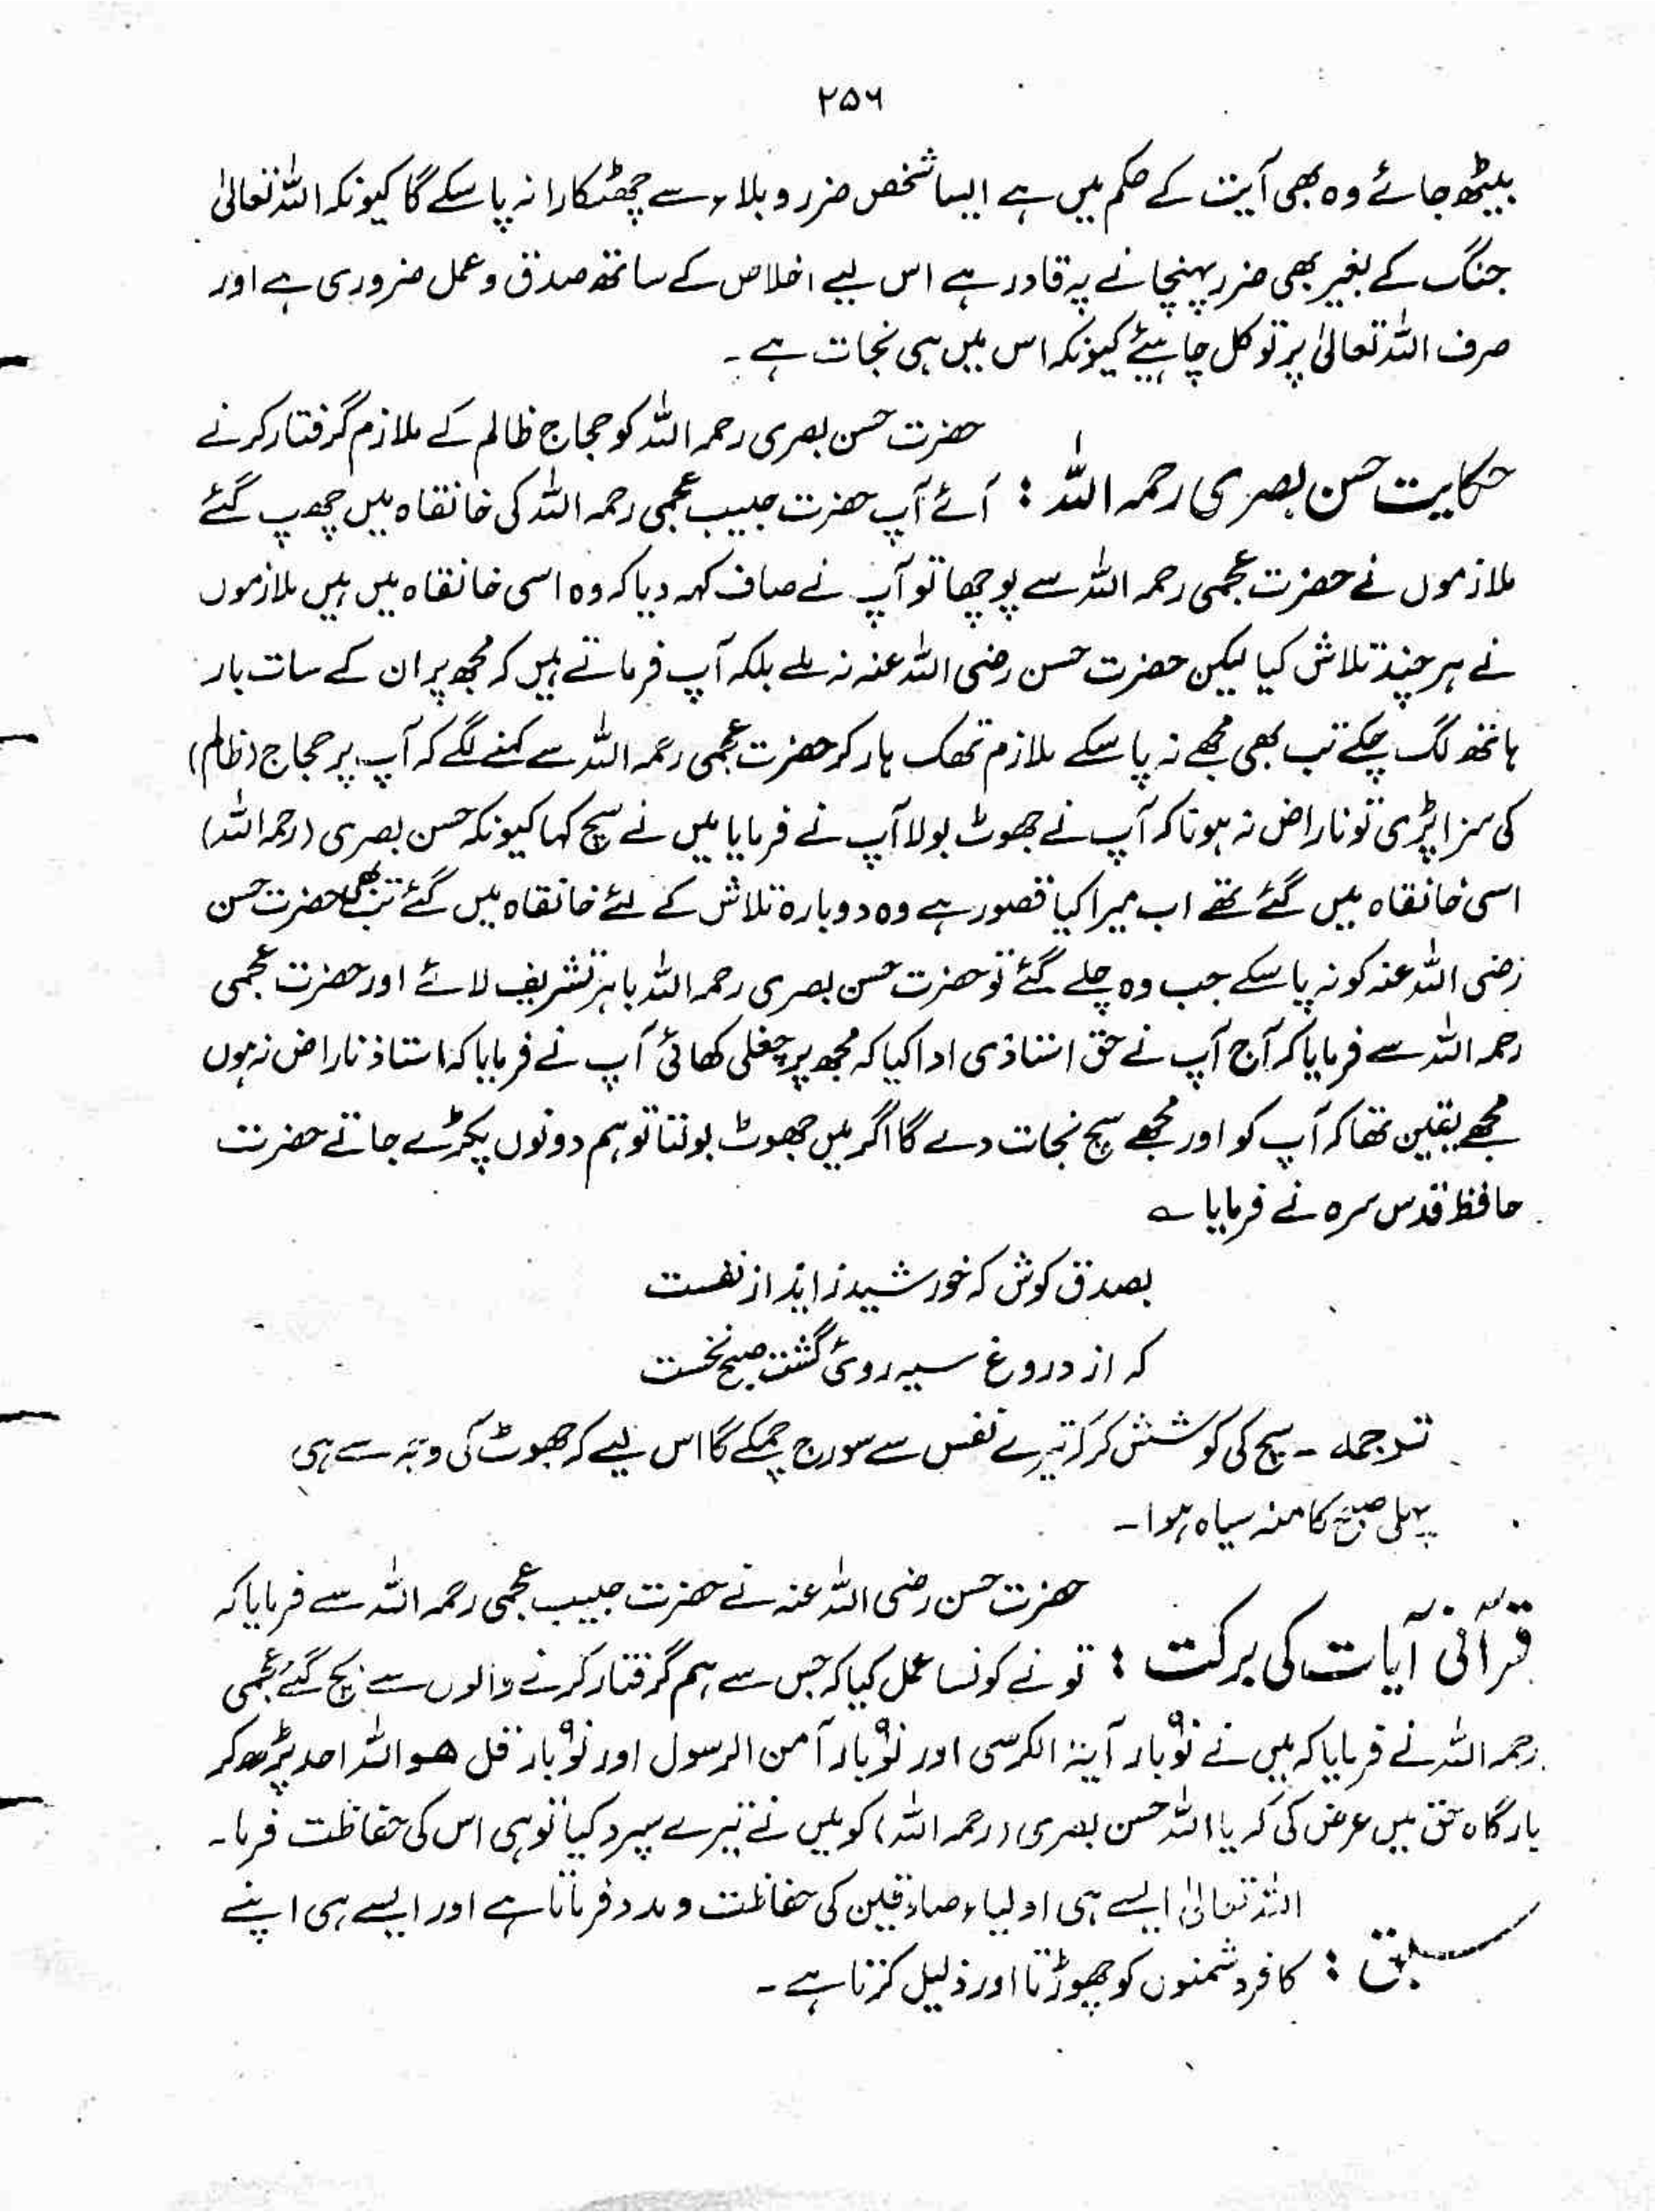 ۲۵۶
بیٹھ جائے وہ بھی آیت کے حکم میں ہے ایسا شخص ضرر و بلاء سے چھٹکارا نہ پا سکے گا کیونکہ اللہ تعالیٰ
جنگ کے بغیر بھی ضرر پہنچانے پہ قادر ہے اس لیے اخلاص کے ساتھ صدق و عمل ضروری ہے اور
صرف اللہ تعالیٰ پر توکل چاہیئے کیونکہ اس میں ہی نجات ہے۔
حضرت حسن بصری رحمہ اللہ کو حجاج ظالم کے ملازم گرفتار کرنے
حکایت حسن بصری رحمہ اللہ : آئے آپ حضرت حبیب عجمی رحمہ اللہ کی خانقاہ میں چھپ گئے
ملازموں نے حضرت عجمی رحمہ اللہ سے پوچھا تو آپ نے صاف کہہ دیا کہ وہ اسی خانقاہ میں ہیں ملازموں
نے ہر چند تلاش کیا لیکن حضرت حسن رضی اللہ عنہ نہ ملے بلکہ آپ فرماتے ہیں کہ مجھ پر ان کے سات بار
ہاتھ لگ چکے تب بھی مجھے نہ پا سکے ملازم تھک ہار کر حضرت عجمی رحمہ اللہ سے کہنے لگے کہ آپ پر حجاج (ظالم)
کی سزا پڑی تو ناراض نہ ہونا کہ آپ نے جھوٹ بولا آپ نے فرمایا میں نے سچ کہا کیونکہ حسن بصری (رحمہ اللہ)
اسی خانقاہ میں گئے تھے اب میرا کیا قصور ہے وہ دوبارہ تلاش کے لئے خانقاہ میں گئے تب بھی حضرت حسن
رضی اللہ عنہ کو نہ پا سکے جب وہ چلے گئے تو حضرت حسن بصری رحمہ اللہ باہر تشریف لائے اور حضرت عجمی
رحمہ اللہ سے فرمایا کہ آج آپ نے حق استاذی ادا کیا کہ مجھ پر چغلی کھائی آپ نے فرمایا کہ استاذ ناراض نہ ہوں
مجھے یقین تھا کہ آپ کو اور مجھے سچ نجات دے گا اگر میں جھوٹ بولتا تو ہم دونوں پکڑے جاتے حضرت
حافظ قدس سرہ نے فرمایا ؎
بصدق کوش کہ خورشید زاید از نفست
کہ از دروغ سیہ روئ گشت صبح نخست
ترجمہ ۔ سچ کی کوشش کر کہ تیرے نفس سے سورج چمکے گا اس لیے کہ جھوٹ کی وجہ سے ہی
پہلی صبح کا منہ سیاہ ہوا۔
حضرت حسن رضی اللہ عنہ نے حضرت حبیب عجمی رحمہ اللہ سے فرمایا کہ
قرآنی آیات کی برکت : تو نے کونسا عمل کیا کہ جس سے ہم گرفتار کرنے والوں سے بچ گئے عجمی
رحمہ اللہ نے فرمایا کہ میں نے نو۹ بار آیۃ الکرسی اور نو۹ بار آمن الرسول اور نو۹ بار قل ھو اللہ احد پڑھ کر
بارگاہ حق میں عرض کی کہ یا اللہ حسن بصری (رحمہ اللہ) کو میں نے تیرے سپرد کیا تو ہی اس کی حفاظت فرما۔
اللہ تعالیٰ ایسے ہی اولیاء صادقین کی حفاظت و مدد فرماتا ہے اور ایسے ہی اپنے
سبق : کافر دشمنوں کو چھوڑتا اور ذلیل کرتا ہے۔